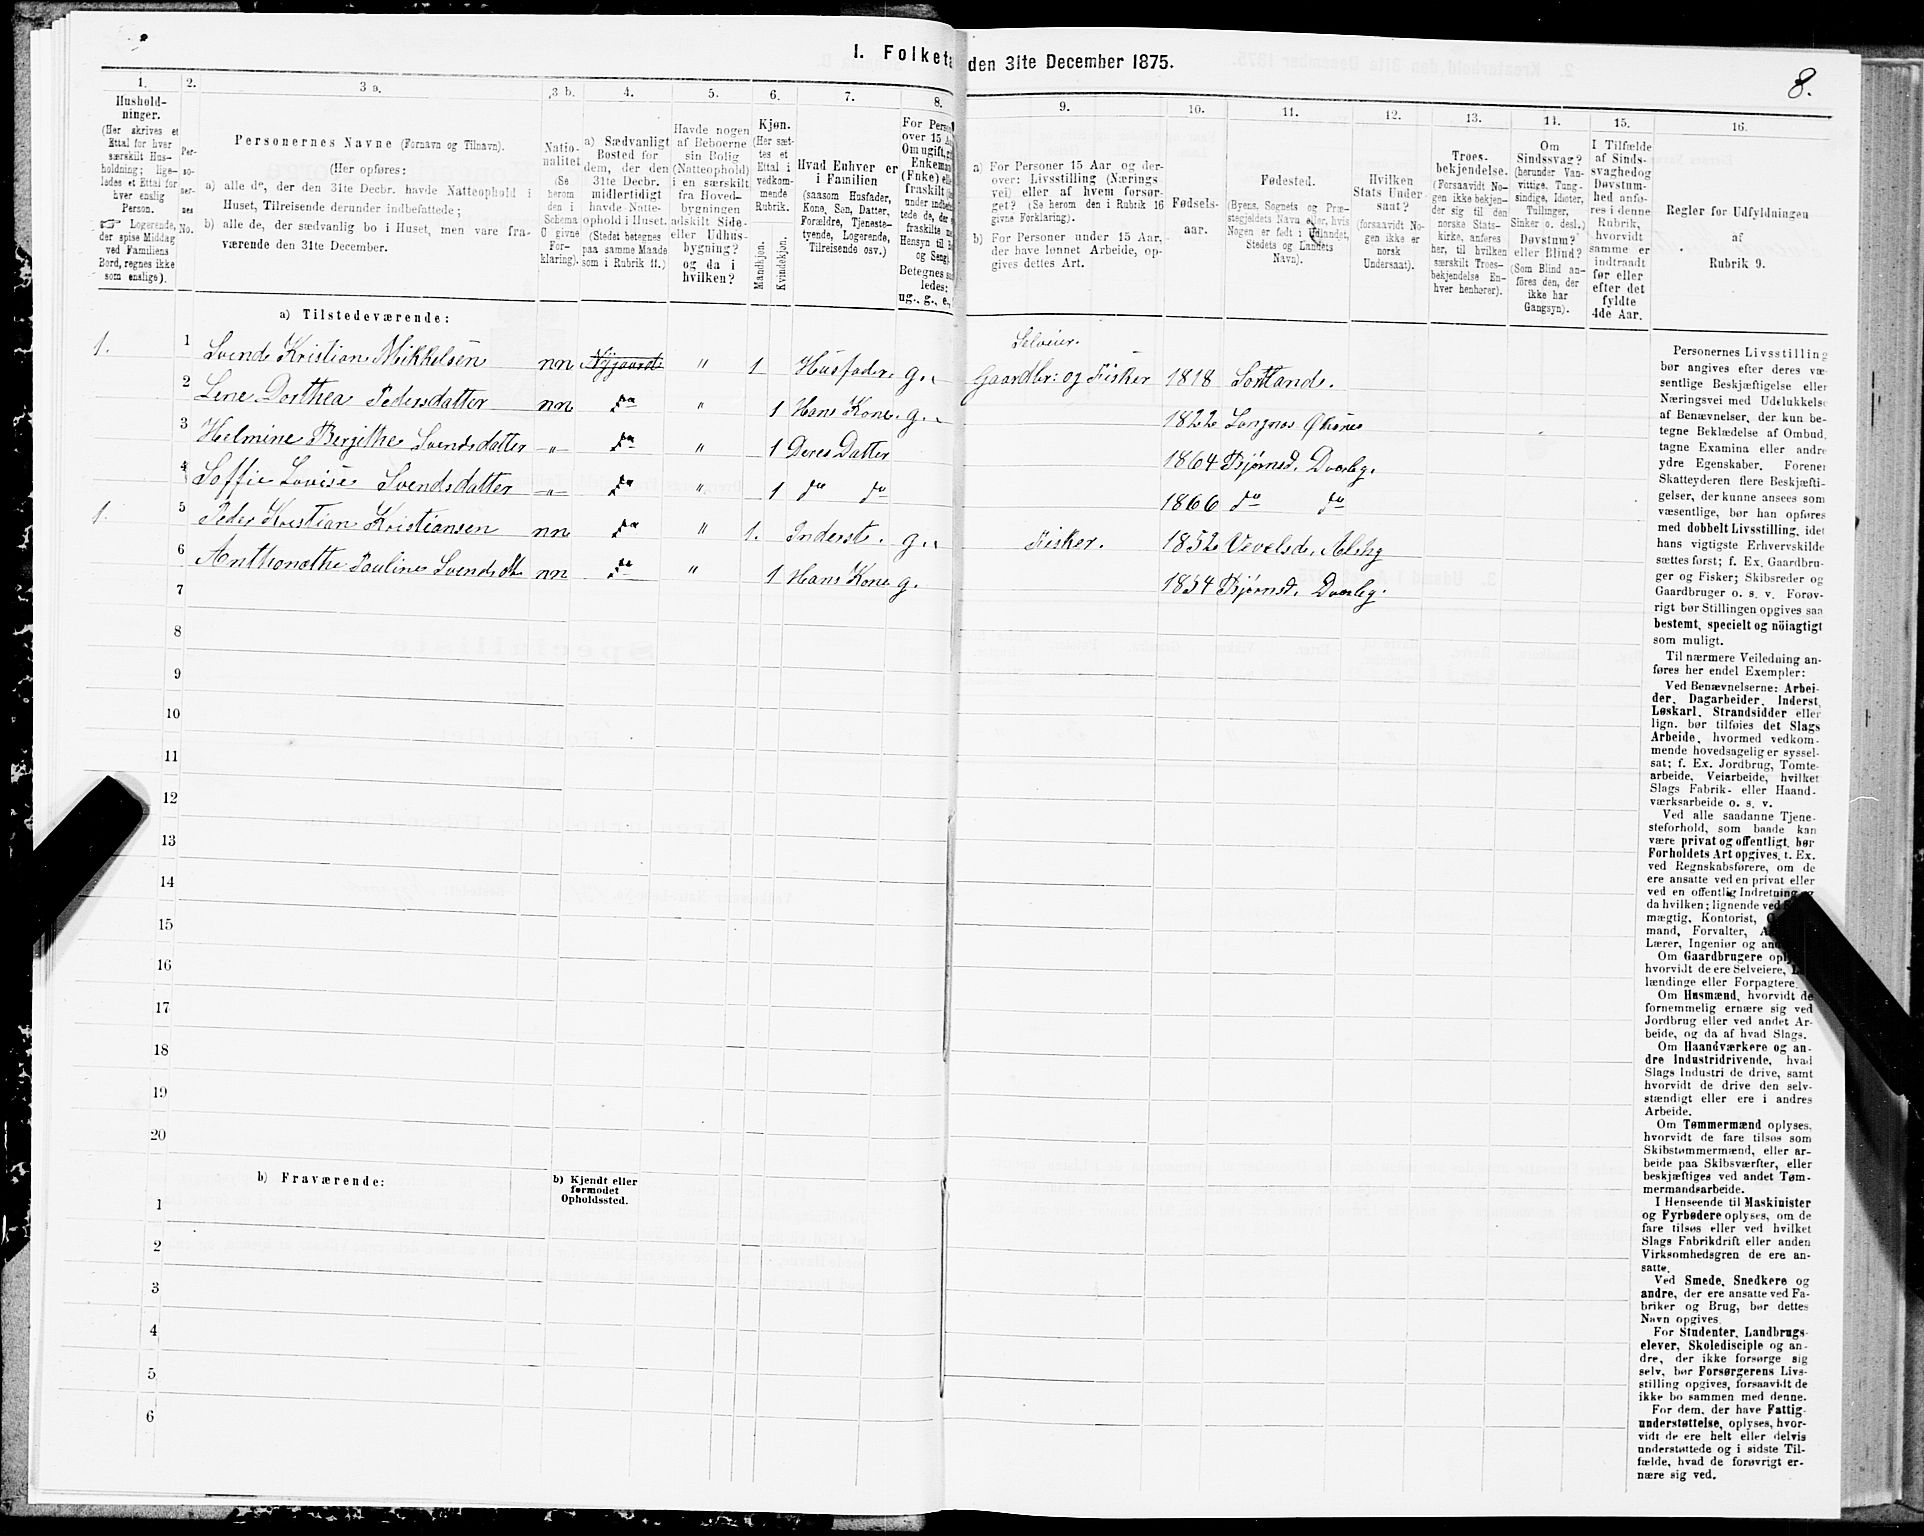 I. Folketæ den 31te December 1875.
8.
1.
Hushold-
ninger.
(Her skrives et
Ettal for hver
særskilt Hus-
holdning; lige-
ledes et Ettal for
hver enslig
Person.
Logerende,
der spise Middag
ved Familiens
Bord, regnes ikke
som enslige).
2.
Per-
so-
ner-
nes
No.
3 a.
Personernes Navne (Fornavn og Tilnavn).
(Her opføres:
a) alle de, der den 31te Decbr. havde Natteophold i
Huset, Tilreisende derunder indbefattede;
b) alle de, der sædvanlig bo i Huset, men vare fra-
værende den 31te December.
3 b.
Natio-
nalitet
(Se
herom
den i
Schema
C givne
For-
klaring).
4.
a) Sædvanligt
Bosted for
dem, der den
31te Decbr.
midlertidigt
havde Natte-
ophold i Huset.
(Stedet betegnes
paa samme Maade
som i Rubrik 11.)
5.
Havde nogen
af Beboerne
sin Bolig
(Natteophold)
i en særskilt
fra Hoved-
bygningen
adskilt Side-
eller Udhus-
bygning?
og da i
hvilken?
6.
Kjøn.
(Her sæt-
tes et
Ettal i
vedkom-
mende
Rubrik.
Mandkjøn.
Kvindekjøn.
7.
Hvad Enhver er
i Familien
(saasom Husfader,
Kone, Søn, Datter,
Forældre, Tjeneste-
tyende, Logerende,
Tilreisende osv.)
8.
For Person
over 15 Aa
Om ugift, gi
Enkeman
(Enke) elle
fraskilt
under indbe
tede de, der
fraskilte
Hensyn til B
og Seng).
Betegnes saa
ledes:
ug., g., e.,
9.
a) For Personer 15 Aar og der-
over: Livsstilling (Nærings-
vei) eller af hvem forsør-
get? (Se herom den i Rubrik 16
givne Forklaring).
b) For Personer under 15 Aar,
der have lønnet Arbeide, op-
gives dettes Art.
10.
Fødsels-
aar.
11.
Fødested.
(Byens, Sognets og Præ-
stegjeldets Navn eller, hvis
Nogen er født i Udlandet,
Stedets og Landets
Navn).
12.
Hvilken
Stats Under-
saat?
(forsaavidt No-
gen ikke er
norsk
Undersaat).
13.
Troes-
bekjendelse.
(Forsaavidt No-
gen ikke bekjen-
der sig til den
norske Stats-
kirke, anføres
her, til hvilken
særskilt Troes-
bekjendelse En-
hver henhører).
14.
Om
Sindssvag?
(herunder Van-
vittige, Tung-
sindige, Idioter,
Tullinger,
Sinker o. desl.)
Døvstum?
eller Blind?
(Som Blind an-
føres den, der
ikke har
Gangsyn).
15.
I Tilfælde
af Sinds-
svaghed og
Døvstum-
hed anfø-
res i denne
Rubrik,
hvorvidt
samme er
indtraadt
før eller
efter det
fyldte
4de Aar.
16.
Regler for Udfyldningen
af
Rubrik 9.
a) Tilstedeværende:
Selveier.
1. 1 Svend Kristian Mikkelsen nn Nygaard " 1 Husfader. g. Gaardbr: og Fisker 1818 Sortland.
2 Lene Dorthea Pedersdatter nn do " 1 Hans Kone. g. 1822 Langnæs Øksnes
3 Helmine Bergithe Svendsdatter -"- do " 1 Deres Datter 1864 Bjørnsd. Dverbg.
4 Soffie Lovise Svendsdatter -"- do " 1 do do 1866 do do
1. 5 Peder Kristian Kristiansen nn do " 1. Inderst. g. Fisker. 1852 Vevelsd.
6 Anthonethe Pauline Svendsdt. nn do " 1 Hans Kone g. 1854 Bjørnsd. Dverbg.
7
8
9
10
11
12
13
14
15
16
17
18
19
20
b) Fraværende:
b) Kjendt eller
formodet
Opholdssted.
1
2
3
4
5
6
Personernes Livsstilling
bør angives efter deres væ-
sentlige Beskjæftigelse eller
Næringsvei med Udelukkelse
af Benævnelser, der kun be-
tegne Beklædelse af Ombud,
tagne Examina eller andre
ydre Egenskaber. Forener
Skatteyderen flere Beskjæfti-
gelser, der kunne ansees som
væsentlige, bør han opføres
med dobbelt Livsstilling, idet
hans vigtigste Erhvervskilde
sættes først; f. Ex. Gaardbru-
ger og Fisker; Skibsreder og
Gaardbruger o. s. v. Forøv-
rigt bør Stillingen opgives saa
bestemt, specielt og nöiagtigt
som muligt.
Til nærmere Veiledning an-
føres her endel Exempler:
Ved Benævnelserne: Arbei-
der, Dagarbeider, Inderst,
Løskarl, Strandsidder eller
lign. bør tilføies det Slags
Arbeide, hvormed vedkom-
mende hovedsagelig er syssel-
sat; f. Ex. Jordbrug, Tomte-
arbeide, Veiarbeide, hvilket
Slags Fabrik- eller Haand-
værksarbeide o. s. v.
Ved alle saadanne Tjene-
steforhold, som baade kan
være privat og offentligt, bør
Forholdets Art opgives, t. Ex.
ved Regnskabsførere, om de
ere ansatte ved en privat eller
ved en offentlig Indretning og
da hvilken; lignende ved
mægtig, Kontorist,
mand, Forvalter,
Lærer, Ingeniør og
Om Gaardbrugere
hvorvidt de ere Selveiere,
lændinge eller Forpagtere.
Om Husmænd, hvorvidt de
fornemmelig ernære sig ved
Jordbrug eller ved andet Ar-
beide, og da af hvad Slags.
Om Haandværkere og an-
dre Industridrivende, hvad
Slags Industri de drive, samt
hvorvidt de drive den selv-
stændigt eller ere i andres
Arbeide.
Om Tømmermænd oplyses,
hvorvidt de fare tilsøs som
Skibstømmermænd, eller ar-
beide paa Skibsværfter, eller
beskjæftiges ved andet Tøm-
mermandsarbeide.
I Henseende til Maskinister
og Fyrbødere oplyses, om de
fare tilsøs eller ved hvilket
Slags Fabrikdrift eller anden
Virksomhedsgren de ere an-
satte.
Ved Smede, Snedkere og
andre, der ere ansatte ved Fa-
briker og Brug, bør dettes
Navn opgives.
For Studenter, Landbrugs-
elever, Skoledisciple og an-
dre, der ikke forsørge sig
selv, bør Forsørgerens Livs-
stilling opgives, forsaavidt de
ikke bo sammen med denne.
For dem, der have Fattig-
understøttelse, oplyses, hvor-
vidt de ere helt eller delvis
understøttede og i sidste Til-
fælde, hvad de forøvrigt er-
nære sig ved.